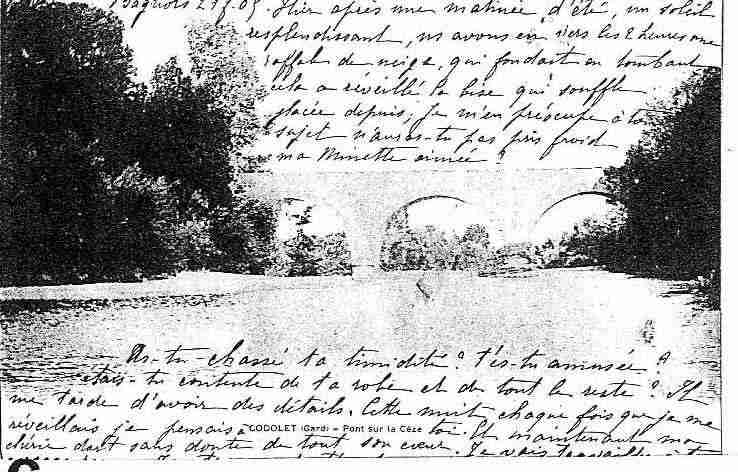 Bagnols 21 f. 05. Hier après une matinée d'été, un soleil
resplendissant, ns avons eu vers les 2 heures une
raffale de neige, qui fondait en tombant
cela a réveillé la bise qui souffle
glacée depuis; je m'en préocupe à ton
sujet n'auras-tu pas pris froid
ma Minette aimée?
As-tu-chassé ta timidité? t'es-tu amusée?
étais-tu contente de ta robe et de tout le reste? Il
me tarde d'avoir des détails. Cette nuit chaque fois que je me
réveillais je pensais à toi. Et maintenant ma
CODOLET (Gard) - Pont sur la Cèze
chérie dort sans doute de tout son cœur. Je vais